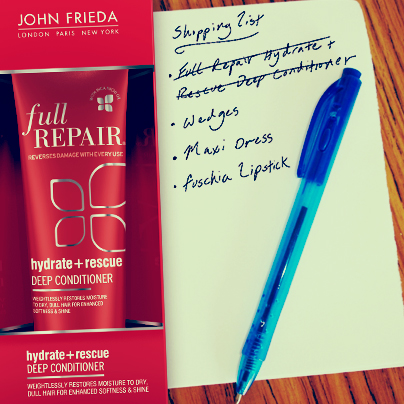 JOHN FRIEDA
LONDON PARIS NEW YORK
full
REPAIR
REVERSES DAMAGE WITH EVERY USE
hydrate+rescue
DEEP CONDITIONER
WEIGHTLESSLY RESTORES MOISTURE
TO DRY, DULL HAIR FOR ENHANCED
SOFTNESS & SHINE
hydrate+rescue
DEEP CONDITIONER
WEIGHTLESSLY RESTORES MOISTURE TO DRY,
DULL HAIR FOR ENHANCED SOFTNESS & SHINE
Shipping list
• Full Repair Hydrate +
Rescue Deep Conditioner
• Wedges
• Maxi Dress
• fuschia Lipstick